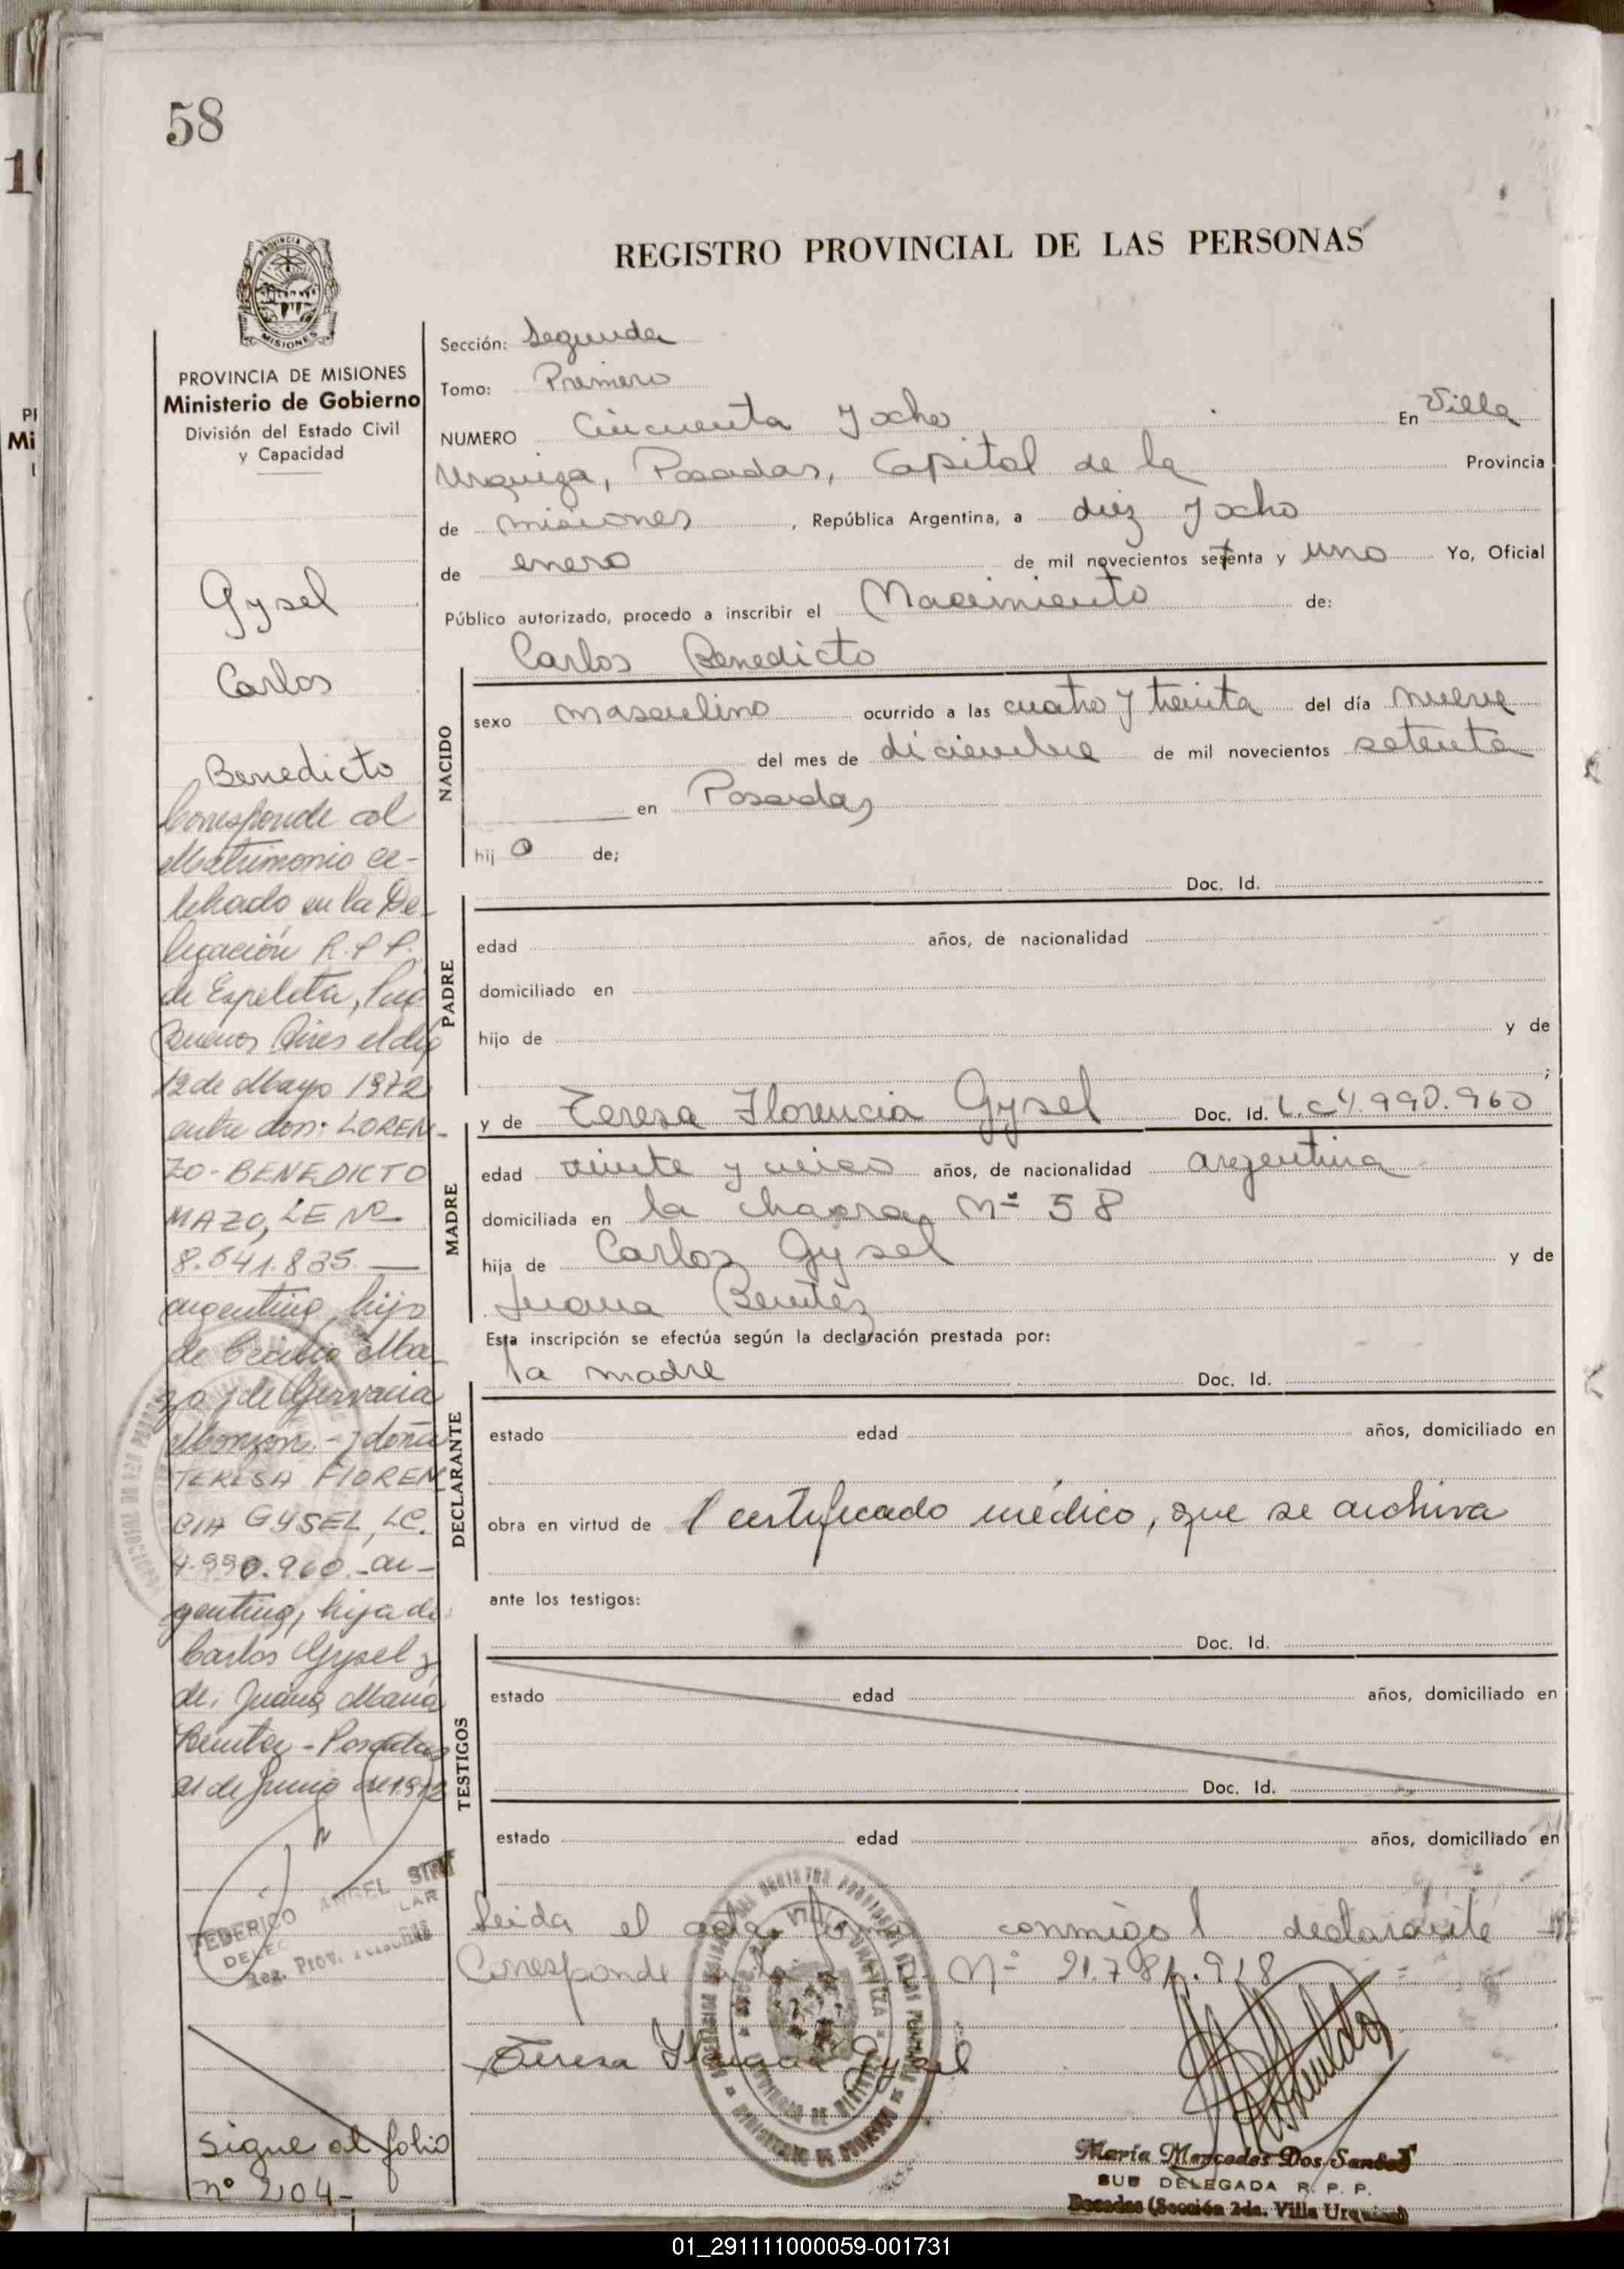 58
REGISTRO PROVINCIAL DE LAS PERSONAS
MISIONES
PROVINCIA DE MISIONES
Ministerio de Gobierno
División del Estado Civil
y Capacidad
Gysel
Carlos
Benedicto
Corresponde al
Matrimonio ce-
lebrado en la De-
legación R.P.P.
de Espeleta, Pcia
Buenos Aires el día
12 de Mayo 1972
entre don: LOREN-
ZO-BENEDICTO
MAZO, LE Nº
8.541.835.
argentino, hijo
de Cecilio Ma
zo y de Gervacia
Monzon.- y doña
TERESA FLOREN
CIA GYSEL, LC.
4.990.960.-ar-
gentina, hija de
Carlos Gysel y
de: Juana Maria
Benitez - Posadas
21 de Junio de 1972
FEDERICO ANGEL
Reg. Prov. Personas
Sigue al folio
nº 204-
Sección: Segunda
Tomo: Primero
NUMERO Cincuenta y ocho En Villa
Urquiza, Posadas, Capital de la Provincia
de misiones, República Argentina, a diez y ocho
de enero de mil novecientos setenta y uno Yo, Oficial
Público autorizado, procedo a inscribir el Nacimiento de:
Carlos Benedicto
NACIDO
sexo masculino ocurrido a las cuatro y treinta del día nueve
del mes de diciembre de mil novecientos setenta
en Posadas
hijo de;
PADRE
Doc. Id.
edad años, de nacionalidad
domiciliado en
hijo de y de
;
MADRE
y de Teresa Florencia Gysel Doc. Id. L.C 4.990.960
edad veinte y cinco años, de nacionalidad argentina
domiciliada en la chacra Nº 58
hija de Carlos Gysel y de
Juana Benitez
Esta inscripción se efectúa según la declaración prestada por:
DECLARANTE
la madre Doc. Id.
estado edad años, domiciliado en
obra en virtud de l certificado médico, que se archiva
ante los testigos:
TESTIGOS
Doc. Id.
estado edad años, domiciliado en
Doc. Id.
estado edad años, domiciliado en
Leida el acta firma conmigo l declarante
Corresponde Nº 21.781.918
Teresa Florencia Gysel
María Mercedes Dos Santos
SUB DELEGADA R. P. P.
Posadas (Sección 2da. Villa Urquiza)
01_291111000059-001731